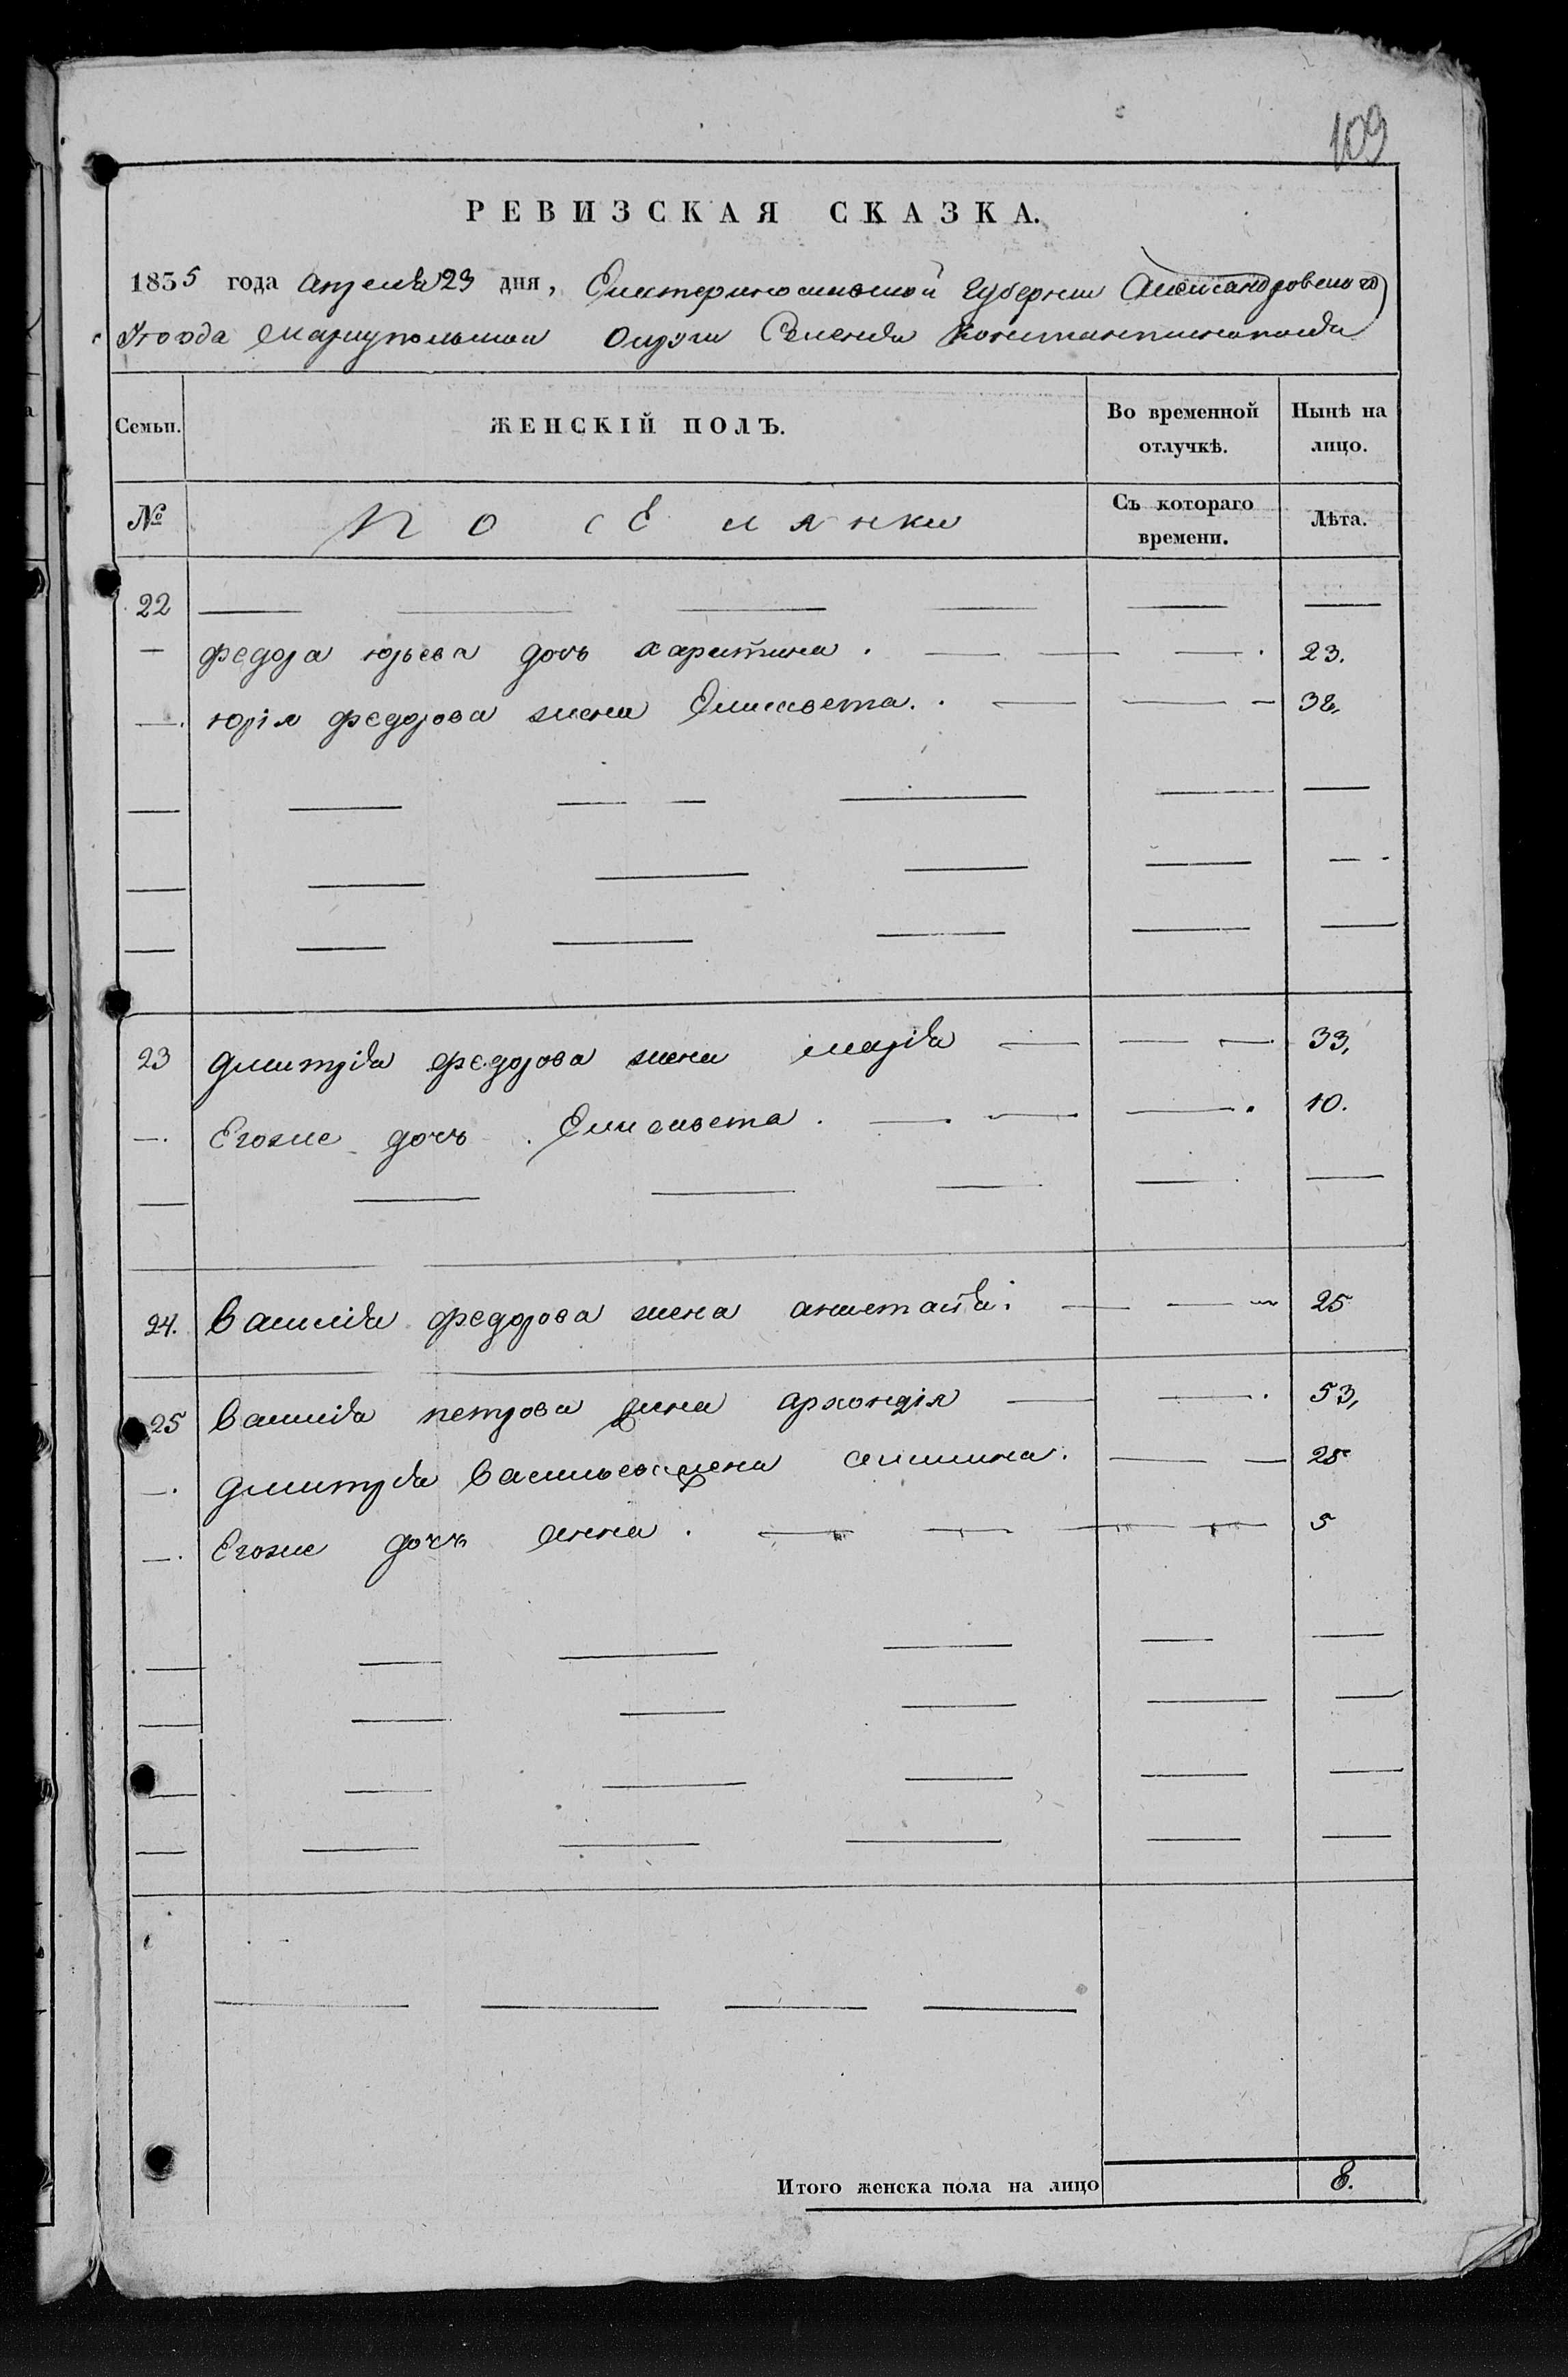 109
РЕВИЗСКАЯ СКАЗКА.
1835 года апреля 23 дня, Екатериносламской Губернии Александровского
Уезда Мариупольская Округи Селения Константинополя
Семьи. ЖЕНСКІЙ ПОЛЪ. Во временной отлучкѣ. Нынѣ на лицо.
№ ПОСЕЛЯНКИ Съ котораго времени. Лѣта.
22 — — — — — —
— федора юрьева дочь харитина. — — — 23.
— юрія федорова жена Елисавета. — — — 38.
— — — — — —
— — — — — —
— — — — — —
23 дмитрія федорова жена марія — — — 33,
— Егоже дочь Елисавета. — — — 10.
— — — — — —
24. василія федорова жена анастасія. — — — 25
25 василія петрова жена архондія — — 53,
— дмитрія васильева жена — — 25
— Егоже дочь анна. — — — — 5
— — — — — —
— — — — — —
— — — — — —
— — — — — —
— — — —
Итого женска пола на лицо 8.